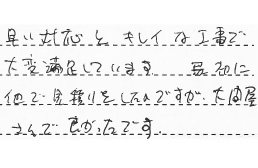 早い対応と キレイな工事で
大変満足しています 最初に
他で見積りをしたのですが、大関屋
さんで良かったです。